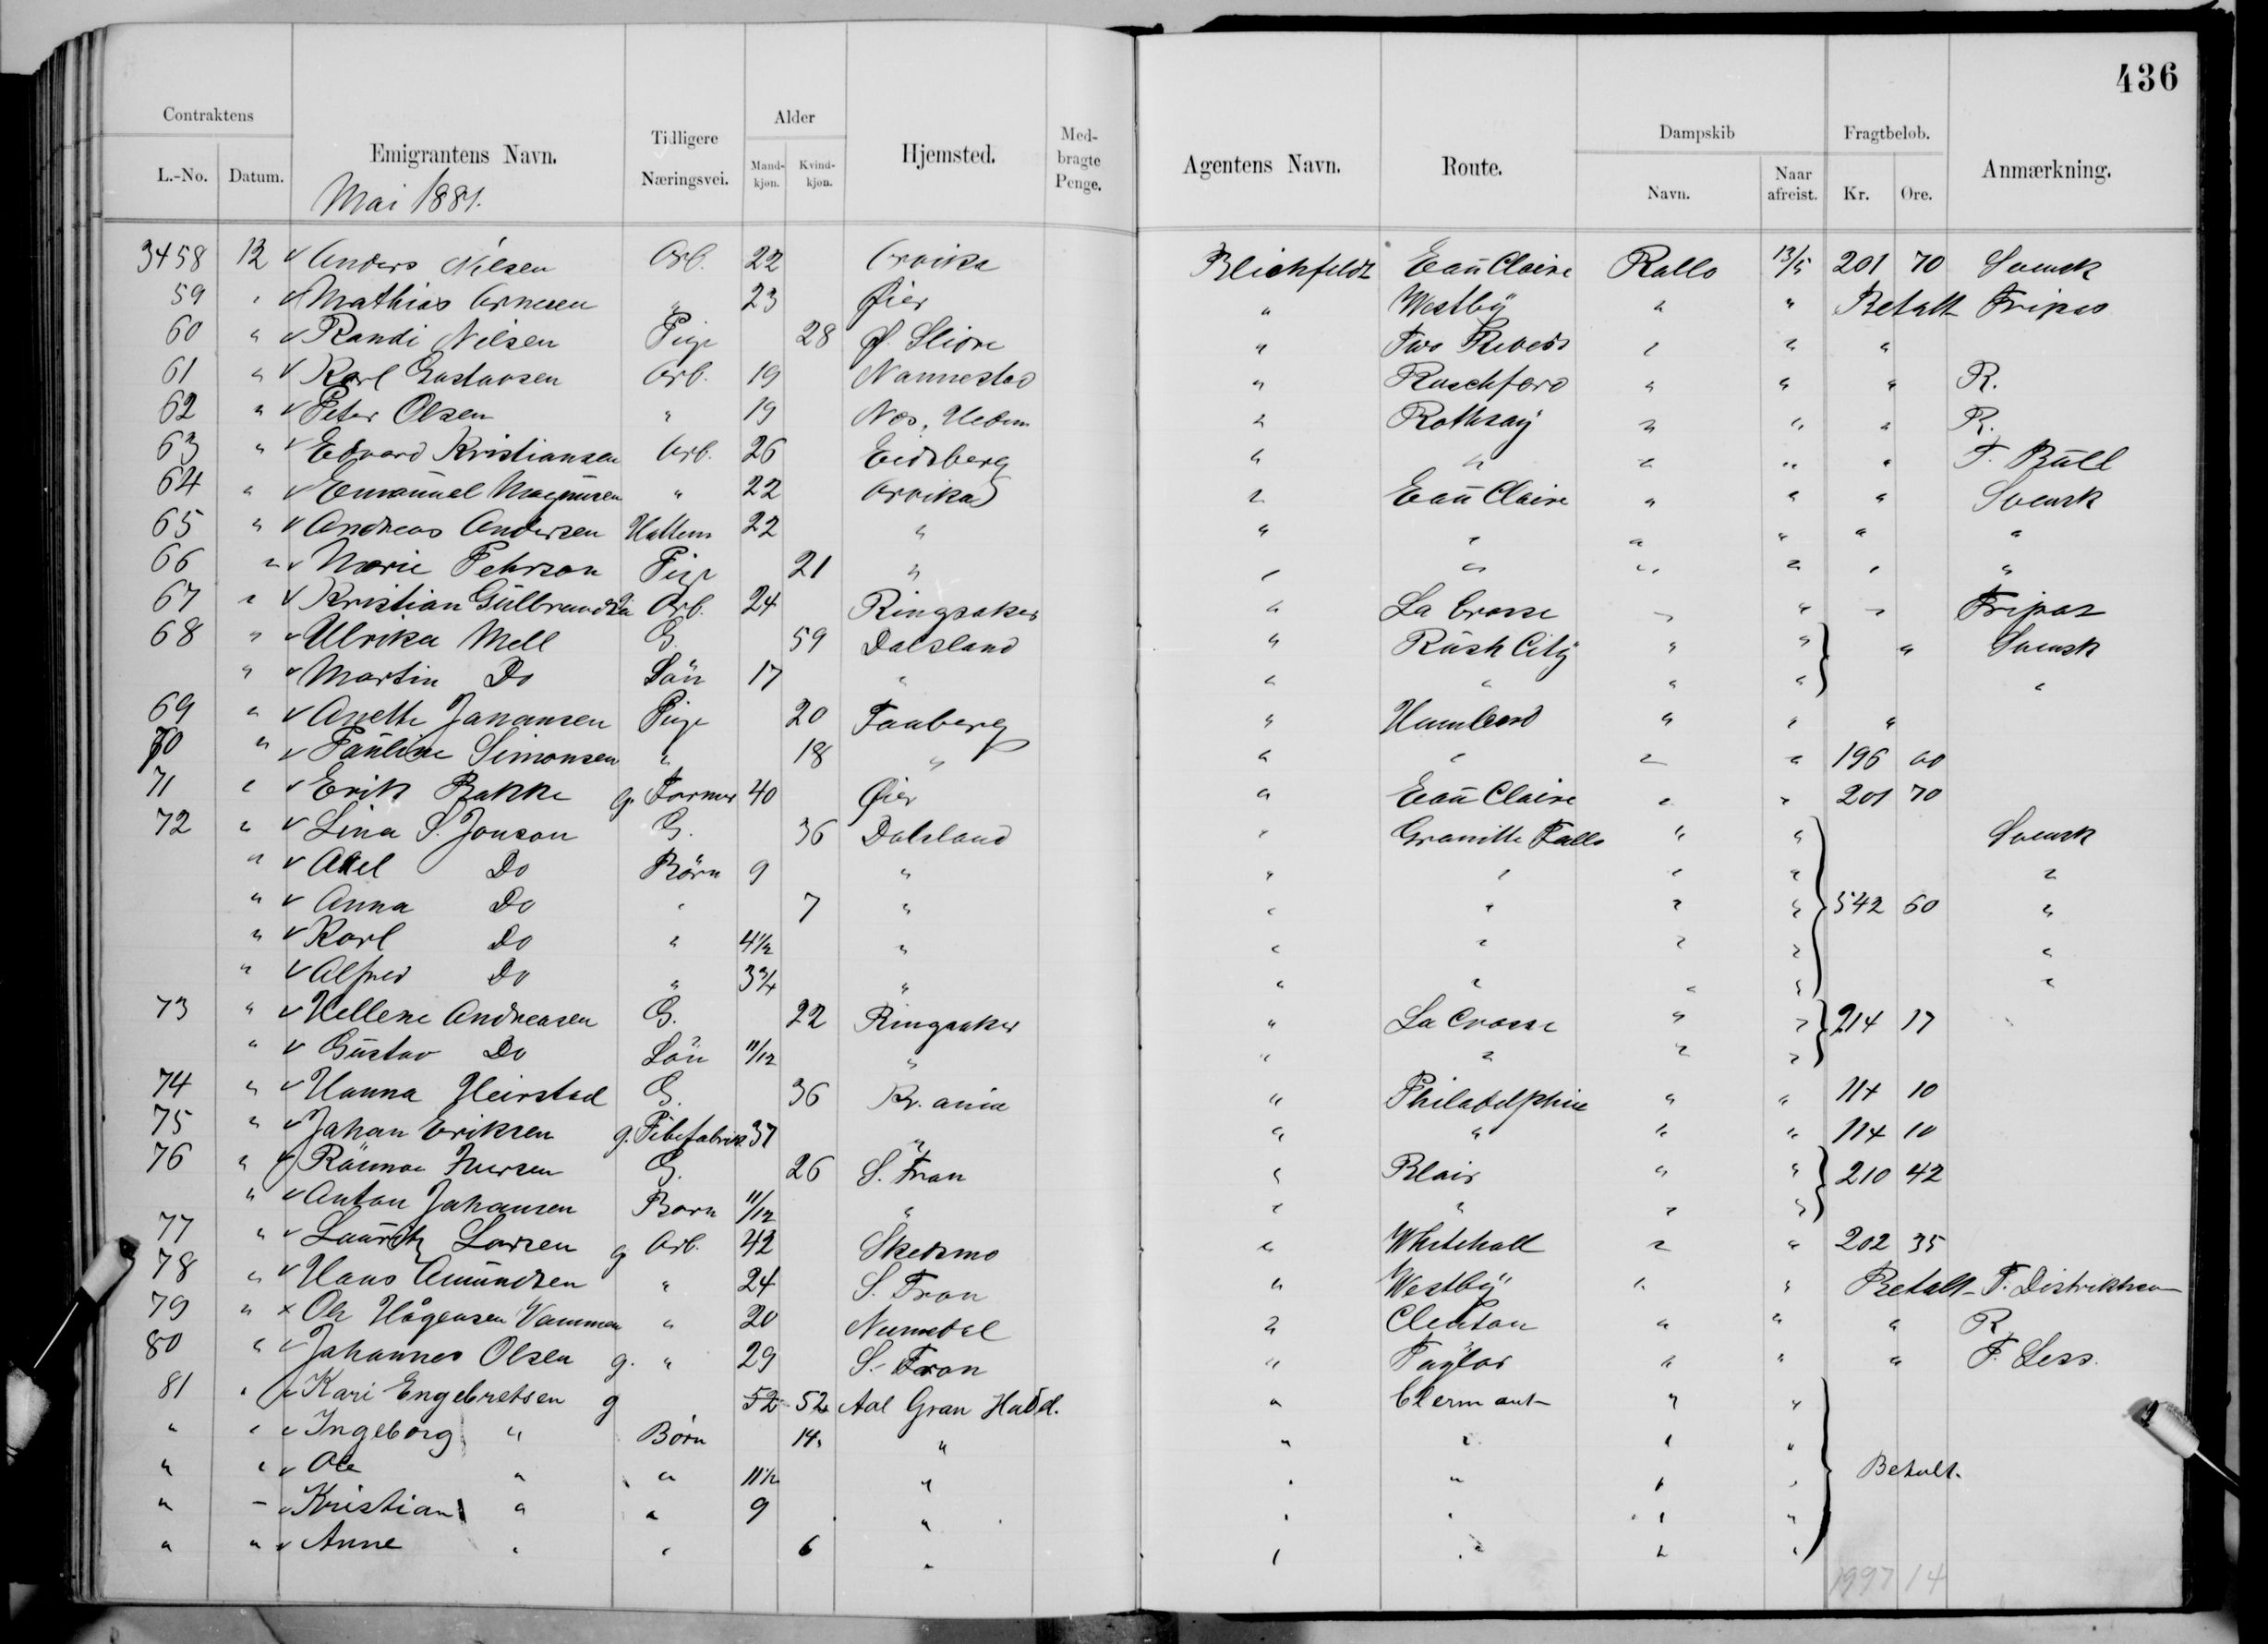 436
Contraktens Emigrantens Navn. Tidligere Næringsvei. Alder Hjemsted. Medbragte Penge. Agentens Navn. Route. Dampskib Fragtbelob. Anmærkning.
L.-No. Datum. Mandkjøn. Kvindkjøn. Navn. Naar afreist. Kr. Øre.
Mai 1881.
3458 12 Anders Nilsen Arb. 22 Arvika Blichfeldt Eau Claire Rollo 13/5 201 70 Svensk
59 " Mathias Arnesen " 23 Øier " Westby " " Betalt Fripas
60 " Randi Nilsen Pige 28 Ø. Slidre " Two Rivers " " "
61 " Karl Gustavsen Arb. 19 Nannestad " Ruschford " " " R.
62 " Peter Olsen " 19 Nes, Hedem " Rothsay " " " R.
63 " Edvard Kristiansen Arb. 26 Eidsberg " " " " " F. Bull
64 " Emanuel Magnusen " 22 Arvika " Eau Claire " " " Svensk
65 " Andreas Andersen 22 " " " " " " "
66 " Marie Pehrson Pige 21 " " " " " " "
67 " Kristian Gulbrandsen Arb. 24 Ringsaker " La Crosse " " " Fripas
68 " Ulrika Mell G. 59 Dalsland " Rush City " " " Svensk
" Martin Do Sön 17 " " " " " "
69 " Anette Janansen Pige 20 Faaberg " " " "
70 " Pauline Simonsen " 18 " " " " " 196 00
71 " Erik Bakke g. Farmer 40 Øier " Eau Claire " " 201 70
72 " Lina S. Jonson G. 36 Dalsland " Granitte Falls " " Svensk
" Axel Do Börn 9 " " " " " "
" Anna Do " 7 " " " " " 542 60 "
" Karl Do " 4 1/2 " " " " " "
" Alfred Do " 3 3/4 " " " " " "
73 " Hellene Andreasen G. 22 Ringsaker " La Crosse " " 214 17
" Gustav Do Sön 11/12 " " " " "
74 " Hanna Heirstad G. 36 Kr.ania " Philadelphia " " 114 10
75 " Johan Eriksen g. Pibefabrik. 37 " " " " " 114 10
76 " Iversen G. 26 S. Fron " Blair " " 210 42
" Anton Johansen Barn 11/12 " " " " "
77 " Lauritz Larsen g Arb. 42 Skedsmo " Whitehall " " 202 35
78 " Hans Amundsen " 24 S. Fron " Westby " " Betalt F.
79 " Ole Hågensen Vammen " 20 Numedal " Clenton " " " R
80 " Johannes Olsen g. " 29 S. Fron " Taylor " " " F. Less.
81 " Kari Engebretsen g 52 52 Aal Gran Hadd. " Clermont " "
" " Ingeborg " Børn 14 " " " " "
" " Ole " " 11 1/2 " " " " " Betalt.
" - Kristian " " 9 " " " " "
" " Anne " " 6 " " " " "
1997 14